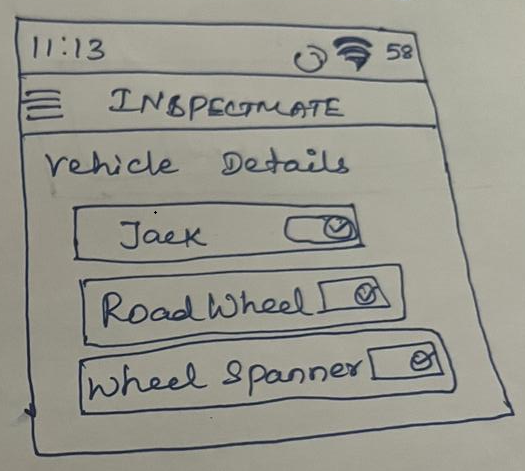 11:13 58
INSPECTMATE
Vehicle Details
Jack
Road Wheel
Wheel Spanner